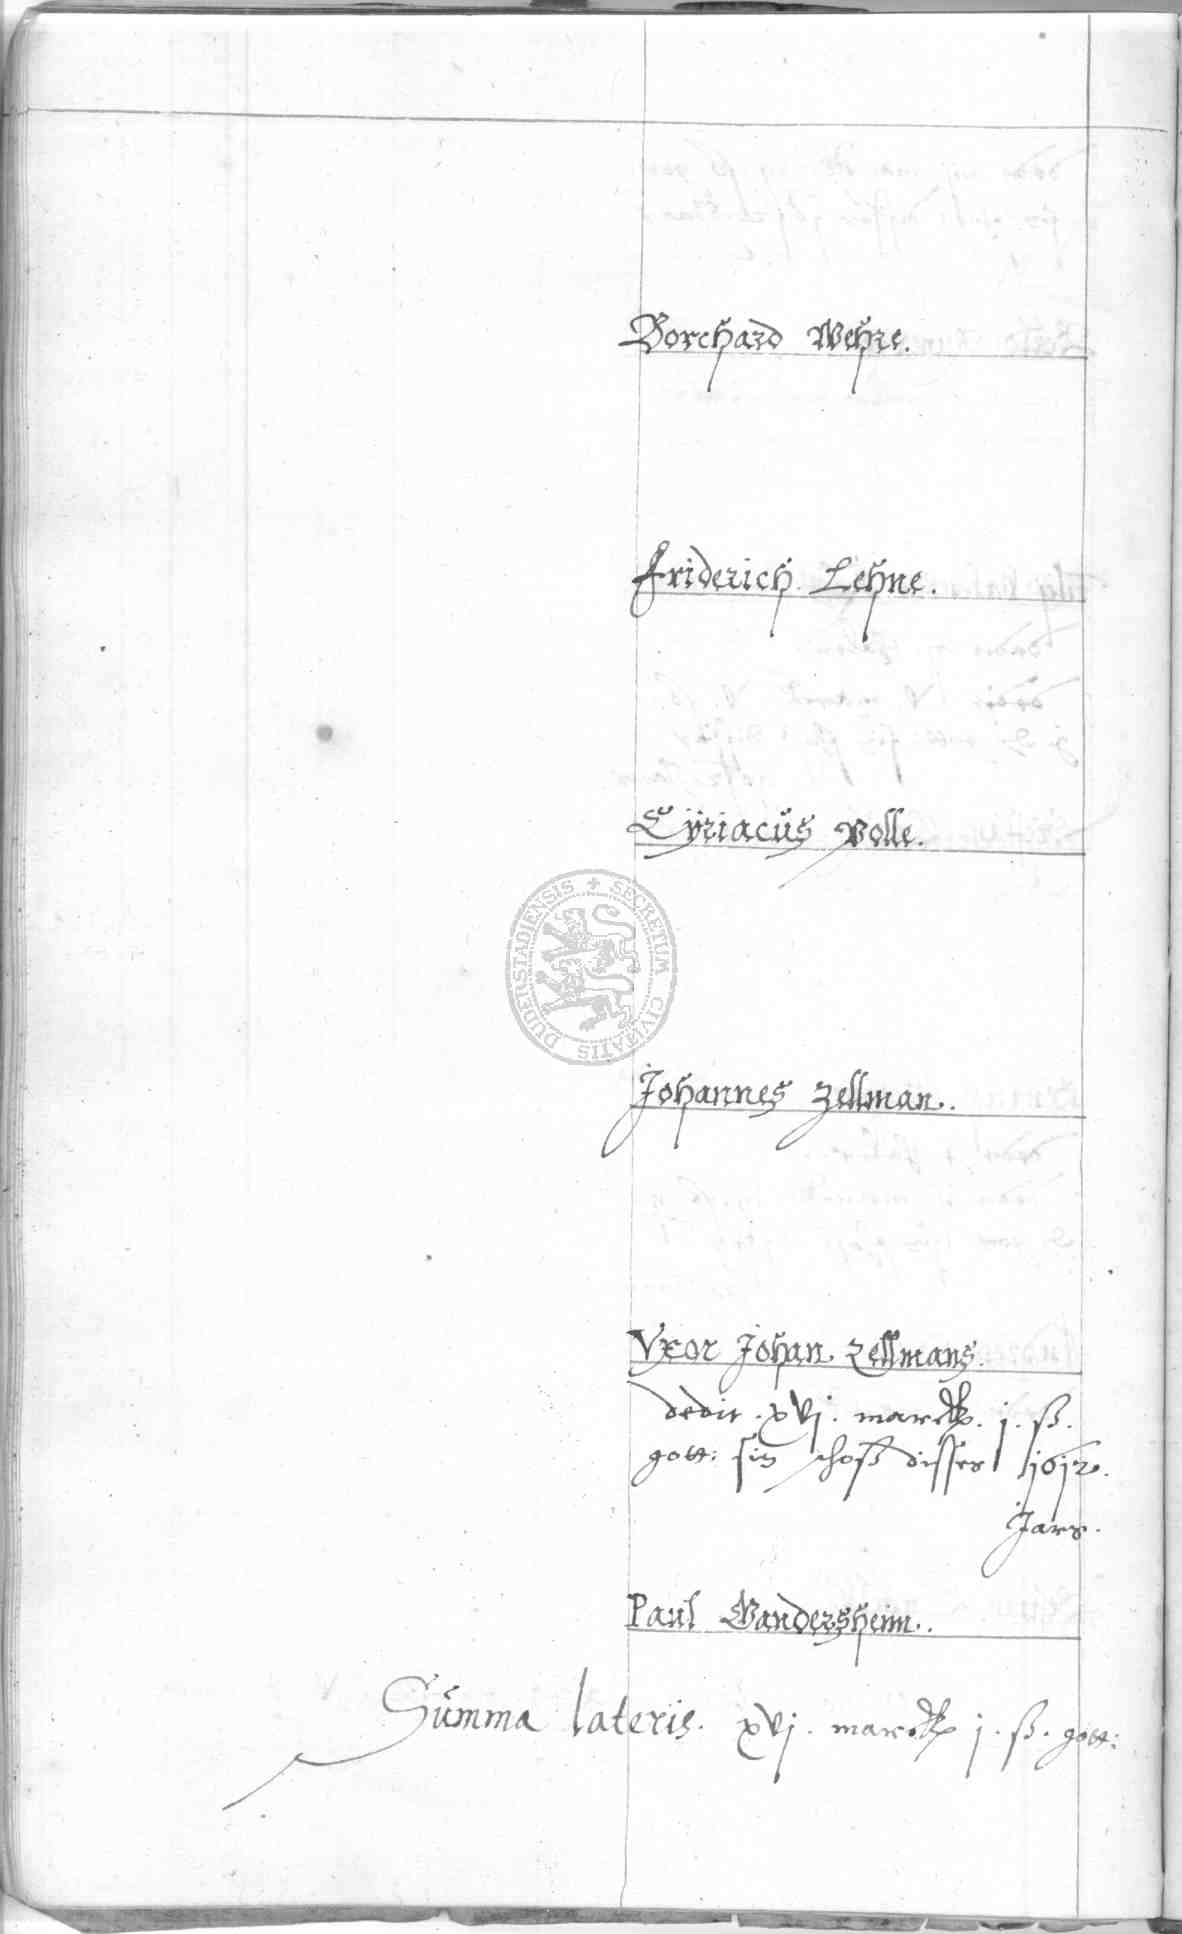 Borchard Wehre.
Friderich Lehne.
Cÿriacus Volle.
DUDERSTADIENSIS + SECRETUM CIVITATIS
Johannes Zellman.
Vxor Johan Zellmans.
dedit . xvj . marck . j . ß .
gott: sin schoß disses 1612.
Jars.
Paul Gandersheim.
Summa lateris. xvj . marck j . ß . gott: